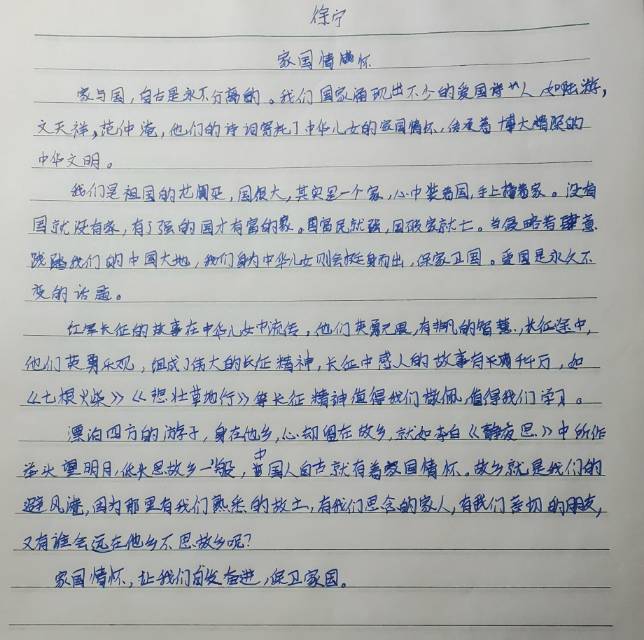 徐宁
家国情怀
家与国,自古是永不分离的。我们国家涌现出不少的爱国诗人,如陆游,
文天祥,范仲淹,他们的诗词寄托了中华儿女的家国情怀,传承着博大精深的
中华文明。
我们是祖国的花朵,国很大,其实是一个家,心中装着国,手上撑着家。没有
国就没有家,有了强的国才有富的家。国富民就强,国破家就亡。当侵略者肆意
践踏我们的中国大地,我们身为中华儿女则会挺身而出,保家卫国。爱国是永久不
变的话题。
红军长征的故事在中华儿女中流传,他们英勇无畏,有非凡的智慧,长征途中,
他们英勇乐观,组成了伟大的长征精神,长征中感人的故事有千千万,如
《七根火柴》《悲壮草地行》等长征精神值得我们敬佩,值得我们学习。
漂泊四方的游子,身在他乡,心却留在故乡,就如李白《静夜思》中所作
举头望明月,低头思故乡一般,中国人自古就有着爱国情怀。故乡就是我们的
避风港,因为那里有我们熟悉的故土,有我们思念的家人,有我们亲切的朋友,
又有谁会远在他乡不思故乡呢?
家国情怀,让我们自发奋进,保卫家国。